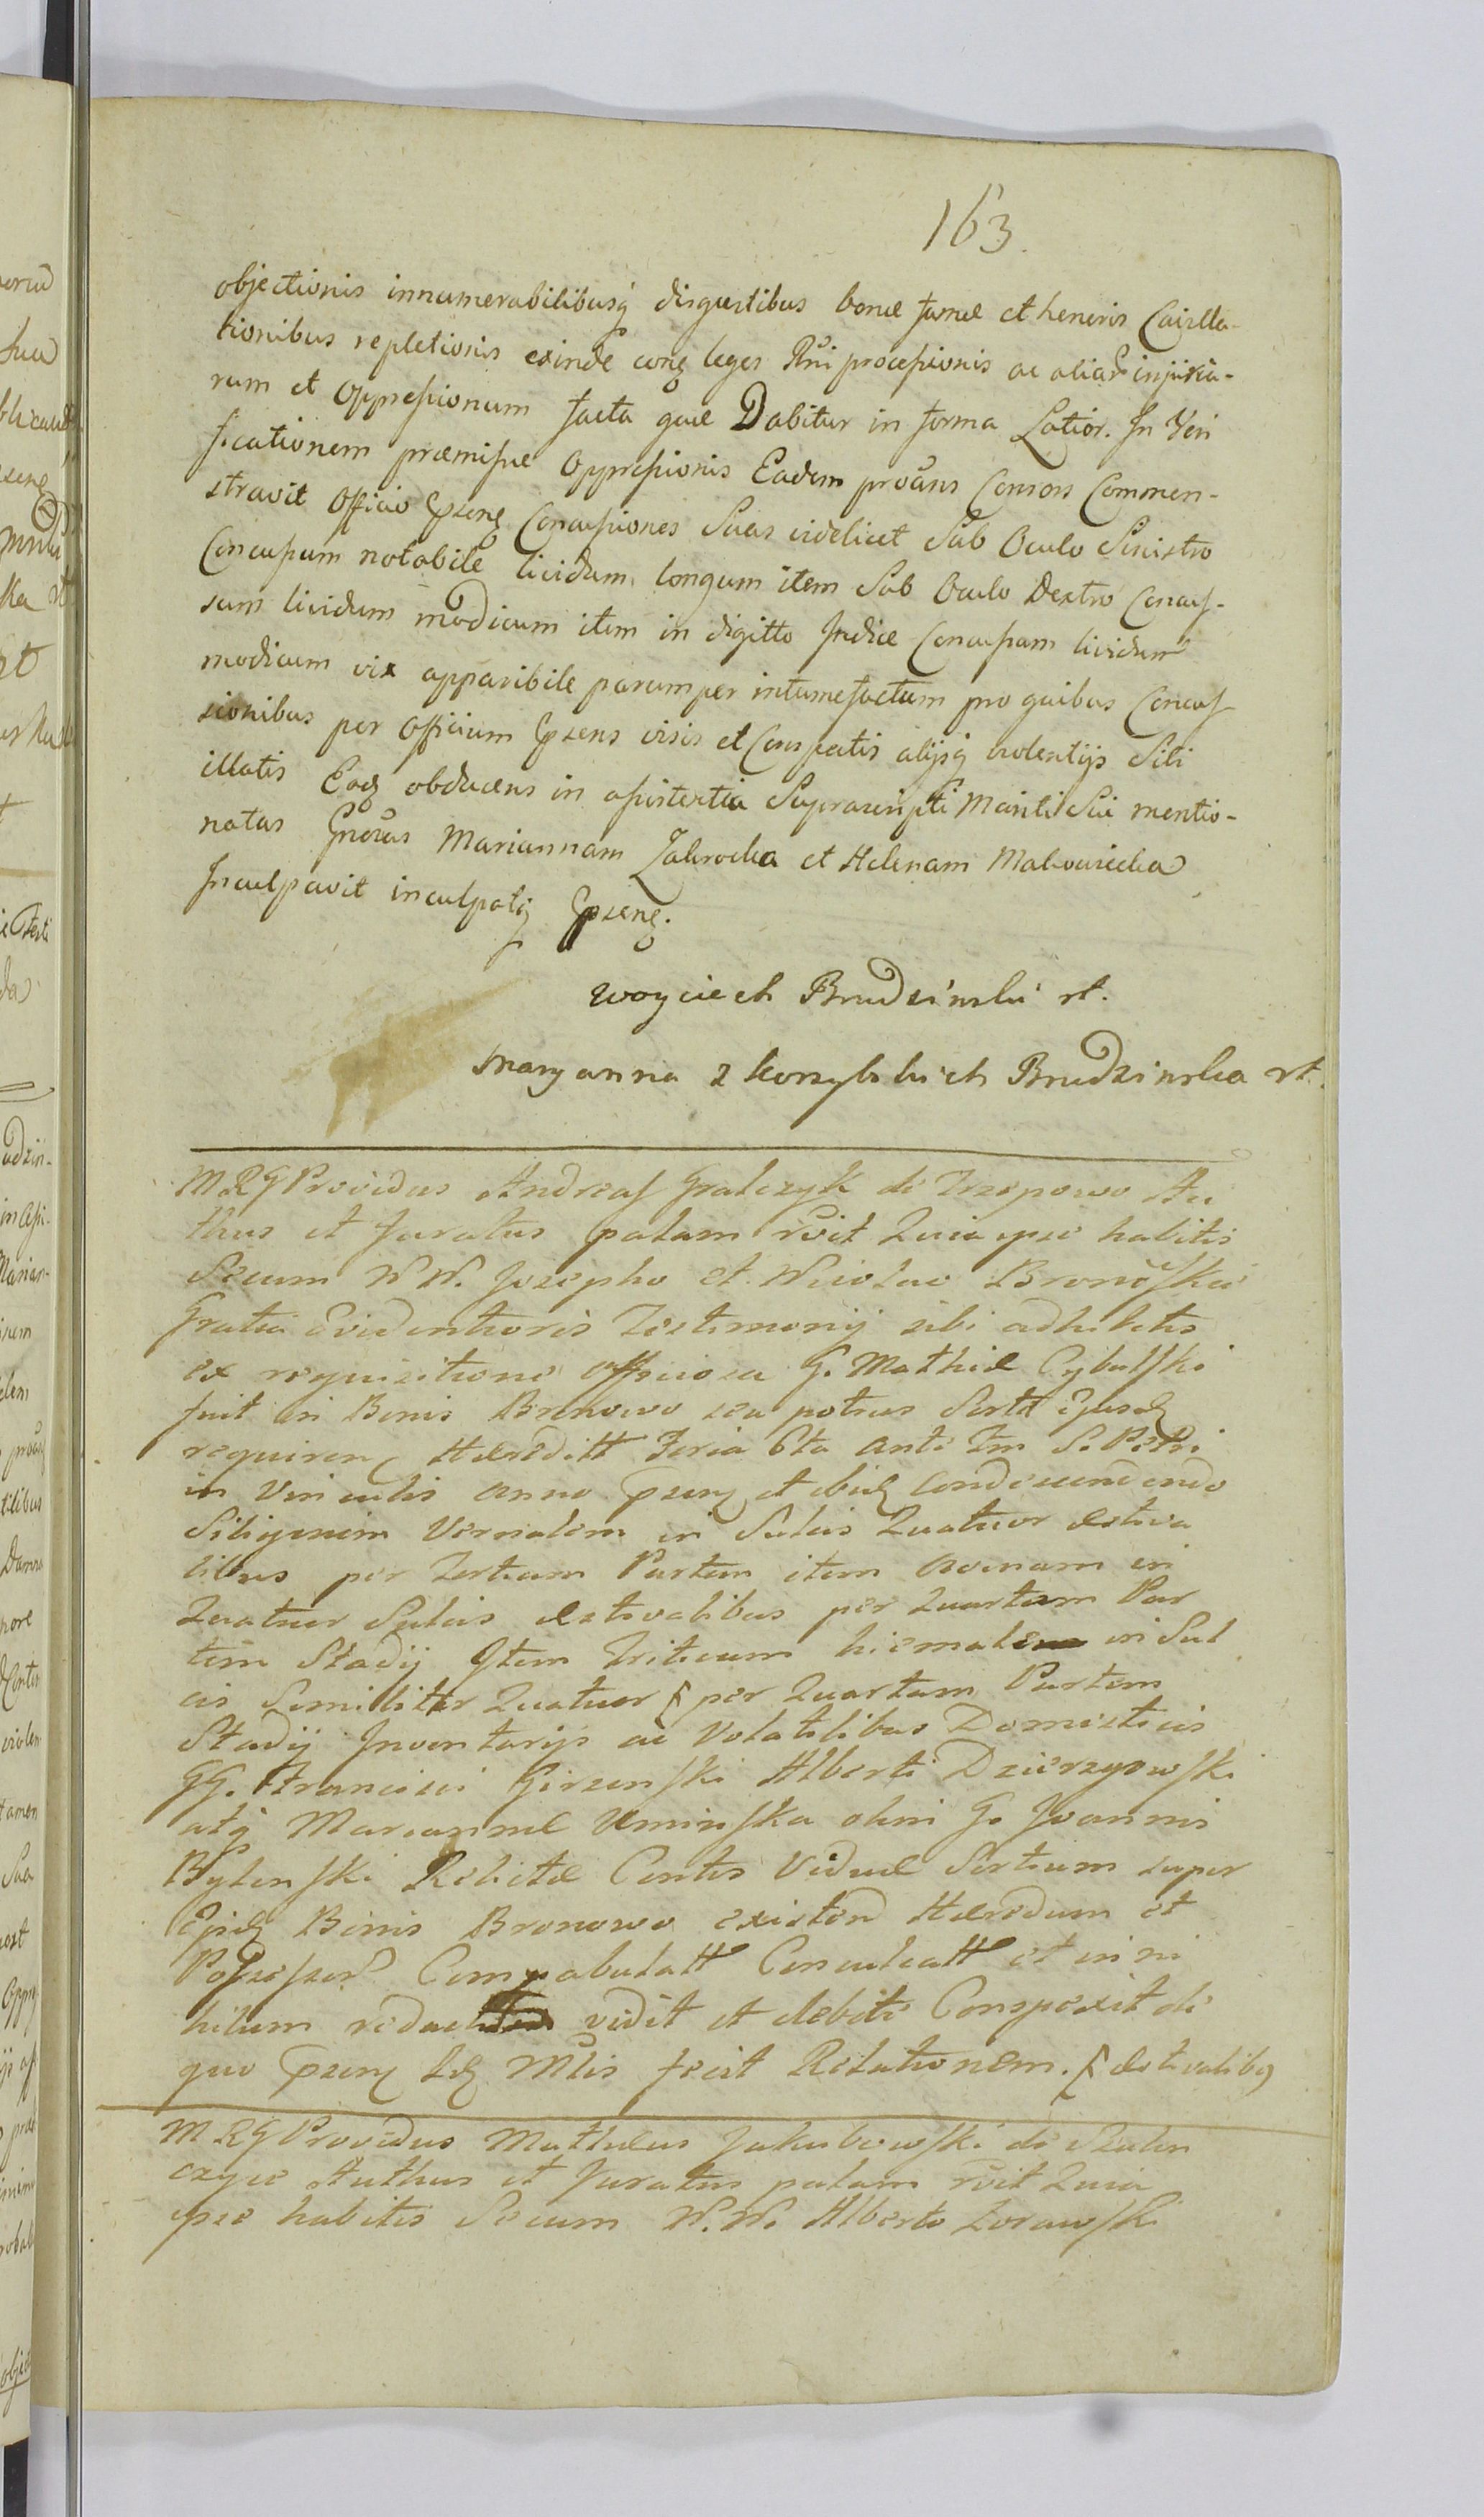 163.
objectionis innumerabilibusq disgustibus bonae famae et honoris Cavilla-
tionibus repletionis exinde conq leges Rni processionis ac aliar injuria-
rum et oppressionum facta quae Dabitur in forma Latior. In Veri
ficationem praemissae oppressionis Eadem proans Consors Commen-
stravit officio Pzenq Concussiones Suas videlicet Sub Oculo Sinistro
Concussum notabile lividum longum item Sub Oculo Dextro Concus-
sum lividum modicum item in digitto Indice Concussum lividum
modicum vix apparibile parumper intumefactum pro quibus Concus-
sionibus per Officium Pzens visis et Conspectis alijsq violentijs Sibi
illatis Eadq obducens in assistentia Suprascripti Mariti Sui mentio-
natas Gnosas Mariannam Zabrocka et Helenam Makowiecka
Inculpavit inculpatq Pzenq.
Woyciech Brudzinski rt.
Maryanna z Korzybskich Brudzinska rt.
M R G Providus Andreas Gralczyk de Trzepowo Au
thus et Juratus palam rvit Quia ipse habitis
Secum W W. Josepho et Nicolao Bronoskie
Gratia Evidentioris Testimonij sibi adhibitis
ex requisitione officiosa G. Mathiae Cybulski
fuit in Bonis Bronowo seu potius Sortt Ejusdq
requiren Haereditt Feria 6ta ante Fm S. Petri
in Vinculis anno Pzenq et ibidq Condescendendo
Siliginem Vernalem in Sulcis Quatuor aestiva
libus per Tertiam Partem item Avenam in
Quatuor Sulcis aestivalibus per Quartam Par
tem Stadij Item Triticum hiemalem in Sul
cis Similiter Quatuor ₣ per Quartam Partem
Stadij Inventarijs ac Volatilibus Domesticis
GG. Francisci Girzenski Alberti Dzierzgowski
atq Mariannae Uminska olim G. Joannis
Bylinski Relictae Contis Viduae Sortium super
Ejsdq Bonis Bronowo existen Haeredum et
Possessor Compabulatt Conculcatt et in ni
hilum redact vidit et debite Conspexit de
quo Pzenq Sq Mtis fecit Relationem. ₣ aestivalibq
M R G Providus Mathaeus Jakubowski de Szulen
czyce Authus et Juratus palam rvit Quia
ipse habitis Secum W. W. Alberto Zorawski